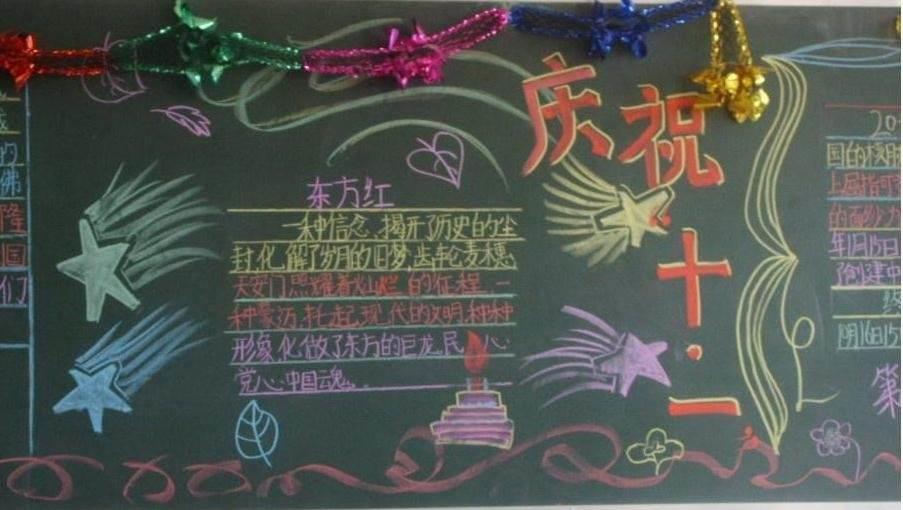 的
佛
隆
国
们
东方红
一种信念、揭开了历史的尘
封化解了岁月的旧梦,齿轮麦穗
天安门照耀着灿烂的征程.一
种豪迈,托起现代的文明,种种
形象化做了东方的巨龙,民心
党心中国魂...
庆祝
十·一
20
国的
上届指
年1月15日
了创建中
终
10月16日15
第